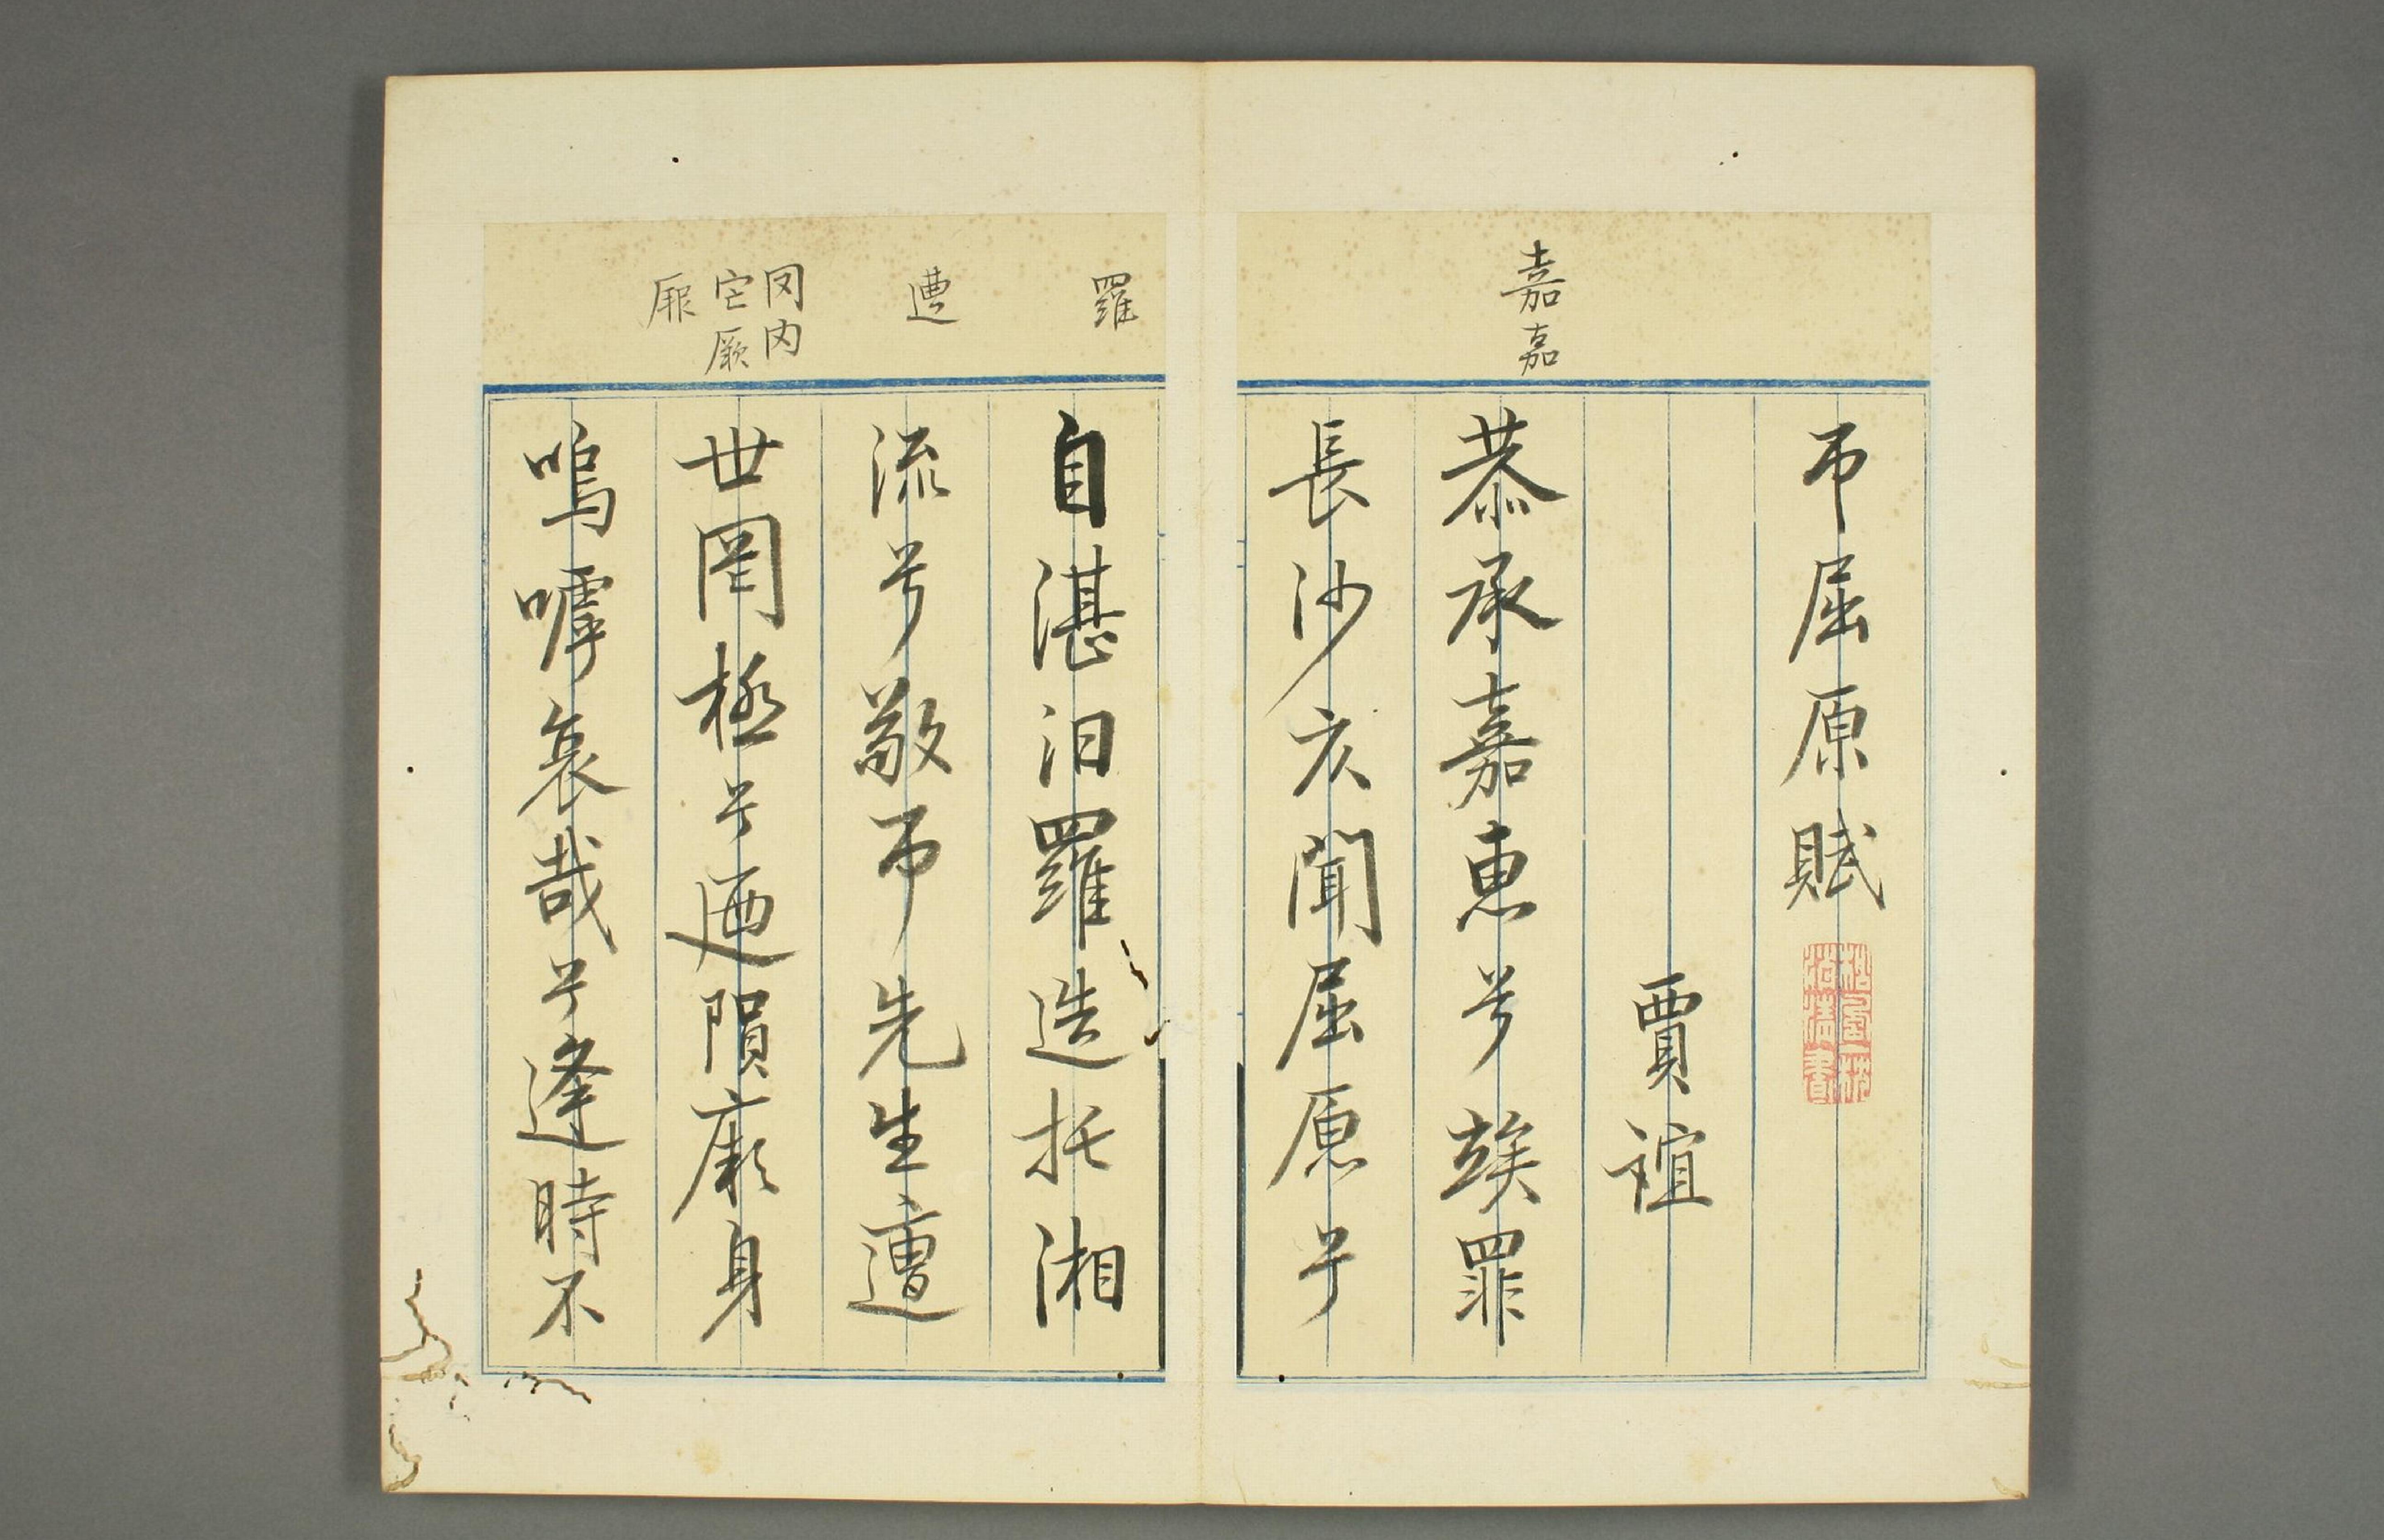 嘉嘉
吊屈原賦
賈誼
恭承嘉惠兮竢罪
長沙仄聞屈原兮
羅
遭
自湛汨羅造托湘
流兮敬吊先生遭
世罔極兮迺隕厥身
嗚嘑哀哉兮逢時不